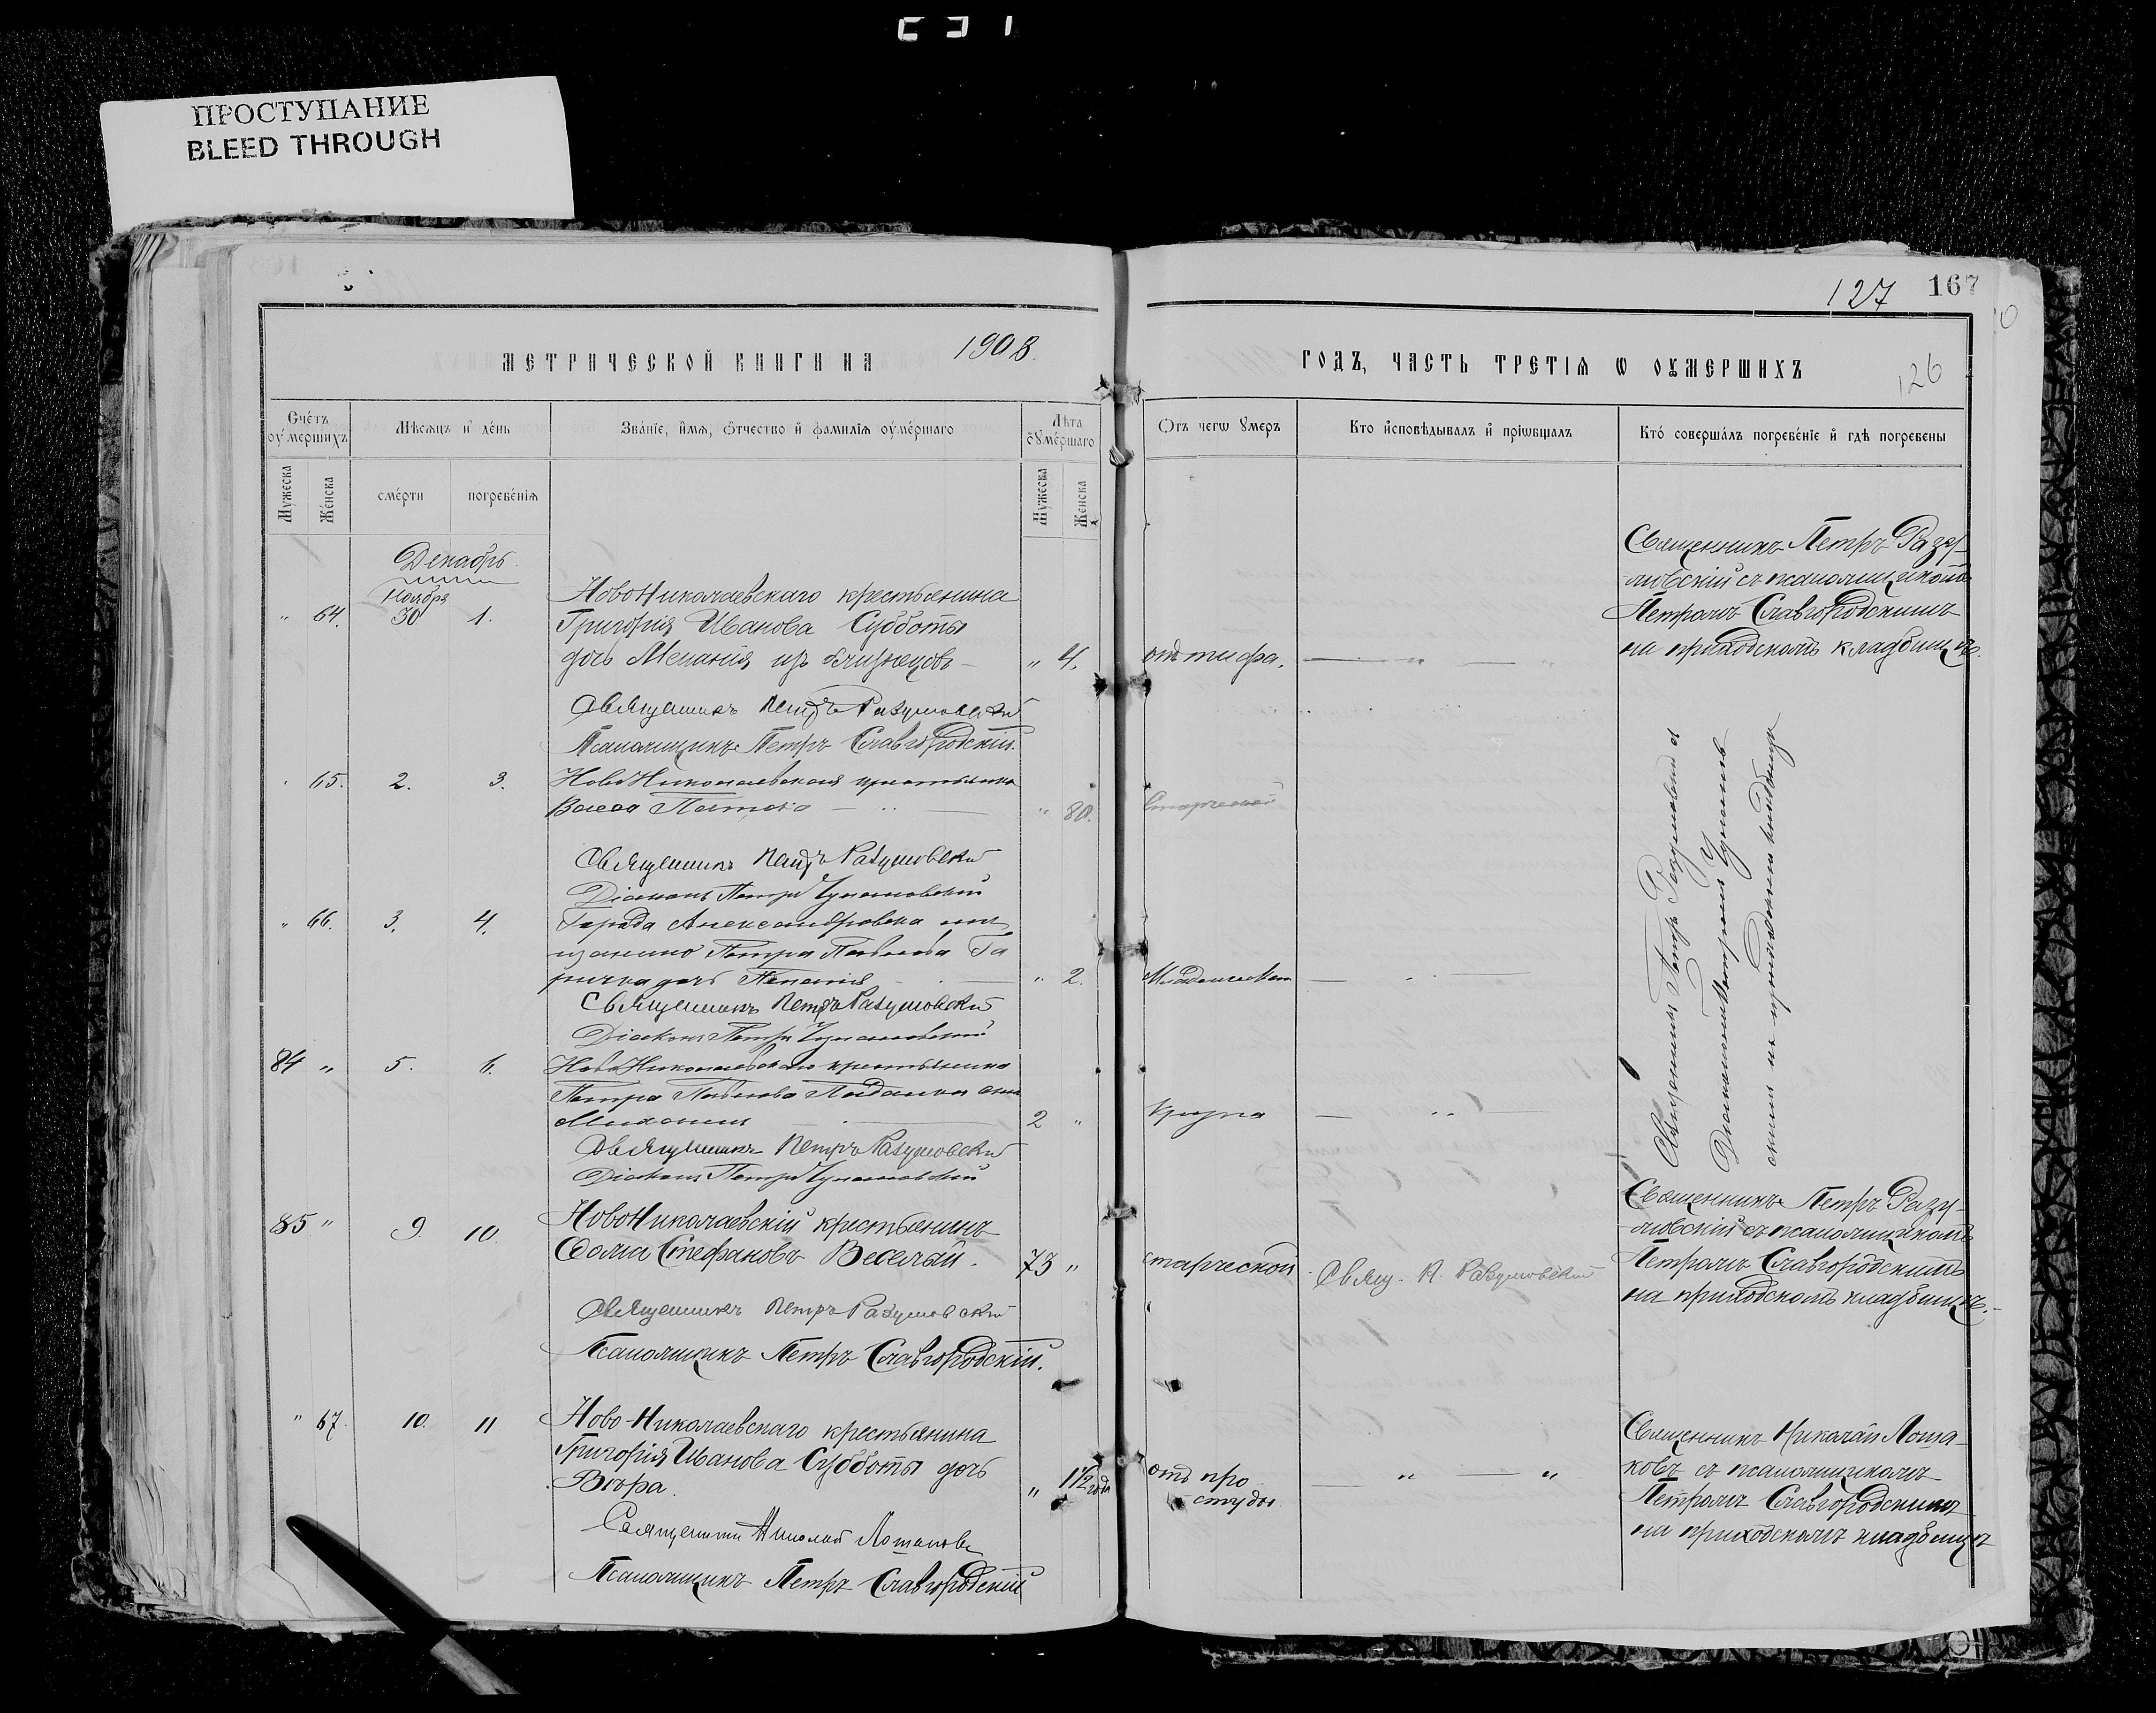 ПРОСТУПАНИЕ
BLEED THROUGH
127 167
МЕТРИЧЕСКОЙ КНИГИ НА 1908
ГОДЪ, ЧАСТЬ ТРЕТІЯ Ѡ ОУМЕРШИХЪ
126
Счетъ оумершихъ
Мѣсяцъ и день
Званіе, имя, отчество и фамилія оумершаго
Лѣта оумершаго
Отъ чегѡ умеръ
Кто исповѣдывалъ и пріѡбщалъ
Кто совершалъ погребеніе и гдѣ погребены
Мужеска
Женска
смерти
погребенія
Мужеска
Женска
Декабрь
Ноября
" 64. 30 1.
НовоНиколаевскаго крестьянина
Григорія Иванова Субботы
дочь Меланія изъ близнецовъ
" 4.
отъ тифа.
Священникъ Петръ Разу-
мовскій съ псаломщикомъ
Петромъ Славгородскимъ
на приходскомъ кладбищѣ.
Священникъ Петръ Разумовскій
Псаломщикъ Петръ Славгородскій.
65. 2. 3.
НовоНиколаевская крестьянка
" 80.
Старческой
Священникъ Петръ Разумовскій
Діаконъ Петръ
" 66. 3. 4.
Города Александровска мѣ
щанина Петра Павлова Га
дочь
" 2.
Священникъ Петръ Разумовскій
Діаконъ Петръ
84 " 5. 6.
НовоНиколаевскаго крестьянина
Петра Павлова сынъ
2 "
Священникъ Петръ Разумовскій
Діаконъ Петръ
Священникъ Петръ Разумовскій съ
на приходскомъ кладбищѣ
85 " 9 10.
НовоНиколаевскій крестьянинъ
Стефановъ Веселый.
73 "
старческой
Свящ. П. Разумовскій
Священникъ Петръ Разу-
мовскій съ псаломщикомъ
Петромъ Славгородскимъ
на приходскомъ кладбищѣ.
Священникъ Петръ Разумовскій
Псаломщикъ Петръ Славгородскій.
" 67. 10. 11
Ново-Николаевскаго крестьянина
Григорія Иванова Субботы дочь
Вѣра.
" 1 1/2 года
отъ про
студы
" "
Священникъ Николай Лоша-
ковъ съ псаломщикомъ
Петромъ Славгородскимъ
на приходскомъ кладбищѣ
Священникъ Николай Лошаковъ
Псаломщикъ Петръ Славгородскій